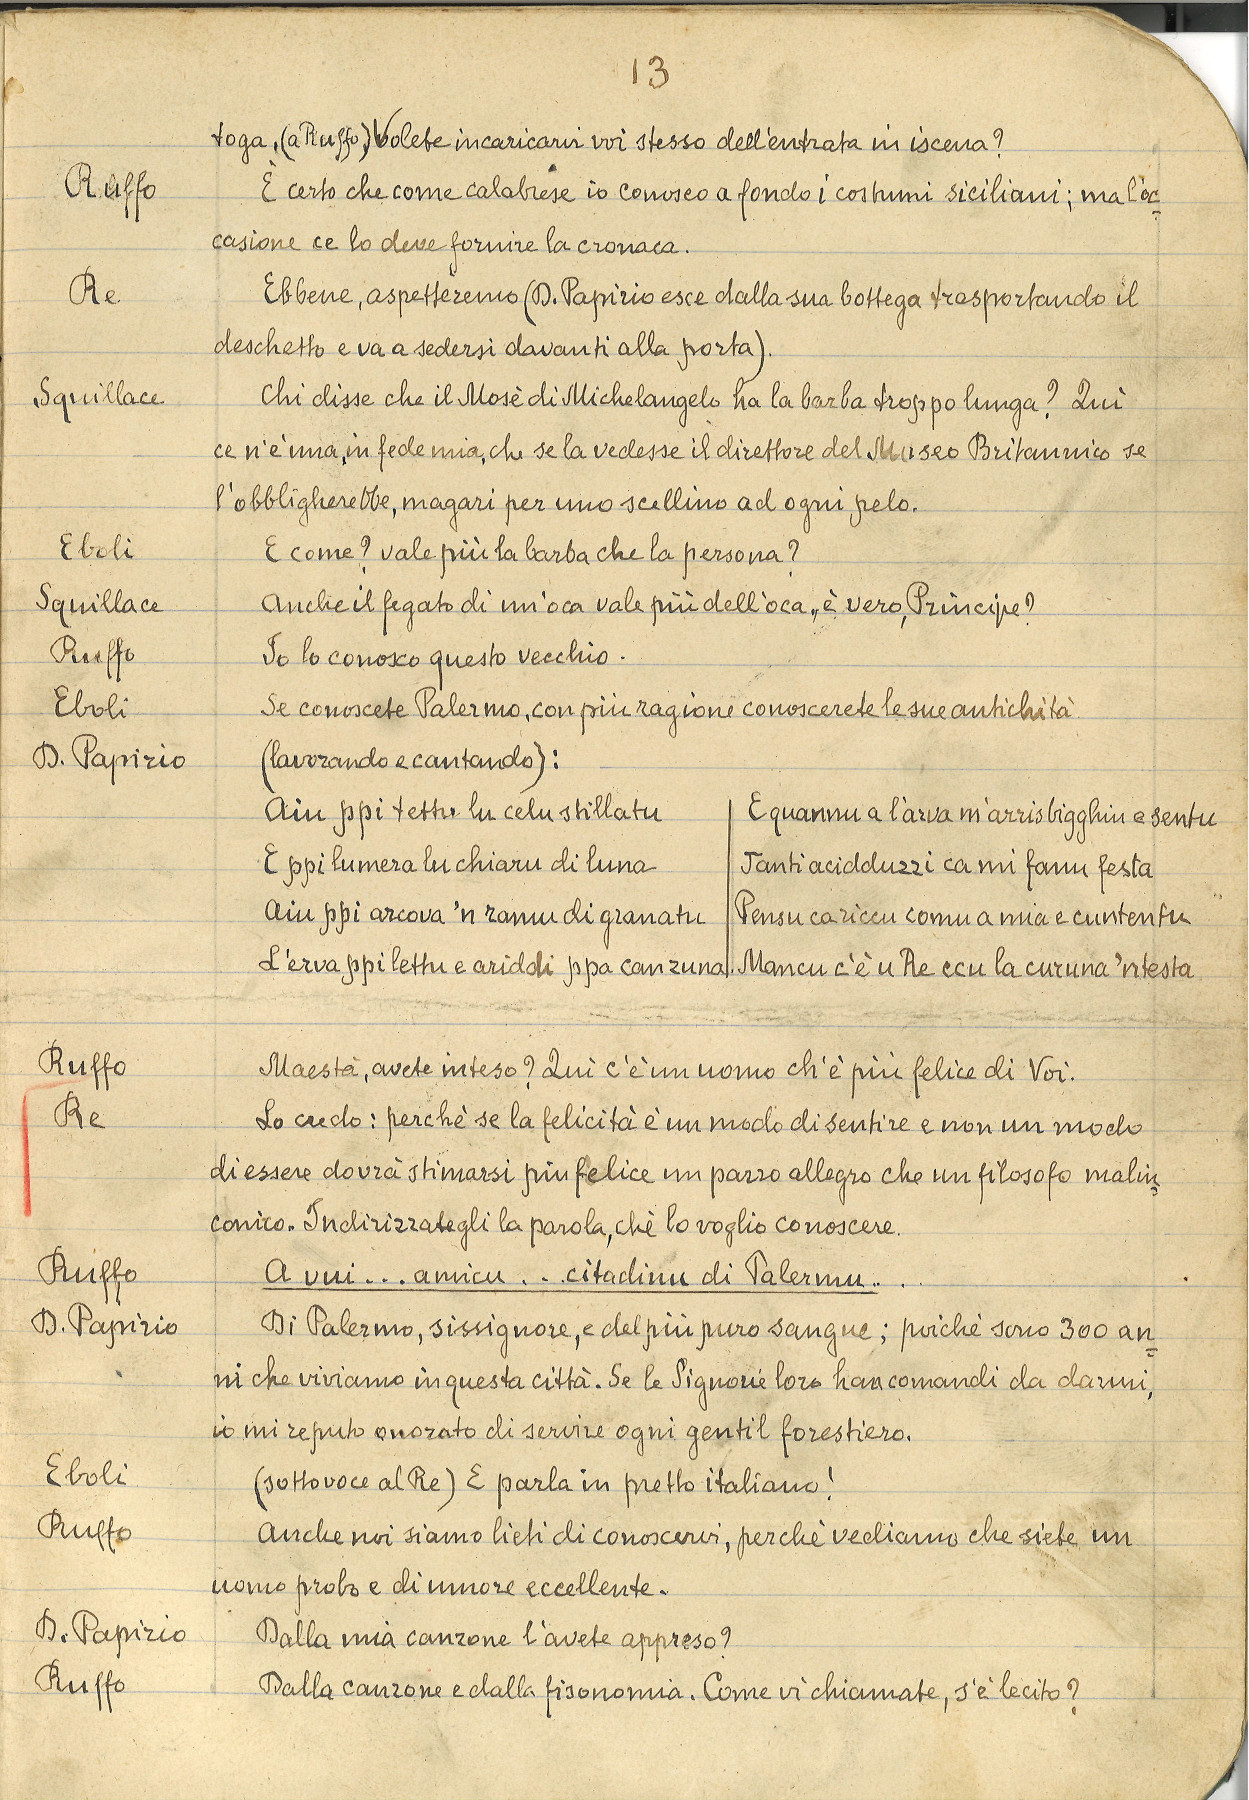 13
toga, (a Ruffo) Volete incaricarvi voi stesso dell'entrata in iscena?
Ruffo È certo che come calabrese io conosco a fondo i costumi siciliani; ma l'oc=
casione ce lo deve fornire la cronaca.
Re Ebbene, aspetteremo (D. Papirio esce dalla sua bottega trasportando il
deschetto e va a sedersi davanti alla porta).
Squillace Chi disse che il Mosè di Michelangelo ha la barba troppo lunga? Qui
ce n'è una, in fede mia, che se la vedesse il direttore del Museo Britannico se
l'obbligherebbe, magari per uno scellino ad ogni pelo.
Eboli E come? vale più la barba che la persona?
Squillace Anche il fegato di un'oca vale più dell'oca, è vero, Principe?
Ruffo Io lo conosco questo vecchio.
Eboli Se conoscete Palermo, con più ragione conoscerete le sue antichità
D. Papirio (lavorando e cantando):
Aiu ppi tettu lu celu stillatu
E ppi lumera lu chiaru di luna
Aiu ppi arcova 'n ramu di granatu
L'erva ppi lettu e ariddi ppa canzuna.
E quannu a l'arva m'arrisbigghiu e sentu
Tanti acidduzzi ca mi fanu festa
Pensu ca riccu comu a mia e cuntentu
Mancu c'è u Re ccu la curuna 'ntesta
Ruffo Maestà, avete inteso? Qui c'è un uomo ch'è più felice di Voi.
Re Lo credo: perchè se la felicità è un modo di sentire e non un modo
di essere dovrà stimarsi più felice un pazzo allegro che un filosofo malin=
conico. Indirizzategli la parola, chè lo voglio conoscere.
Ruffo A vui... amicu... citadinu di Palermu...
D. Papirio Di Palermo, sissignore, e del più puro sangue; poichè sono 300 an=
ni che viviamo in questa città. Se le Signorie loro han comandi da darmi,
io mi reputo onorato di servire ogni gentil forestiero.
Eboli (sottovoce al Re) E parla in pretto italiano!
Ruffo Anche noi siamo lieti di conoscervi, perchè vediamo che siete un
uomo probo e di umore eccellente.
D. Papirio Dalla mia canzone l'avete appreso?
Ruffo Dalla canzone e dalla fisonomia. Come vi chiamate, s'è lecito?